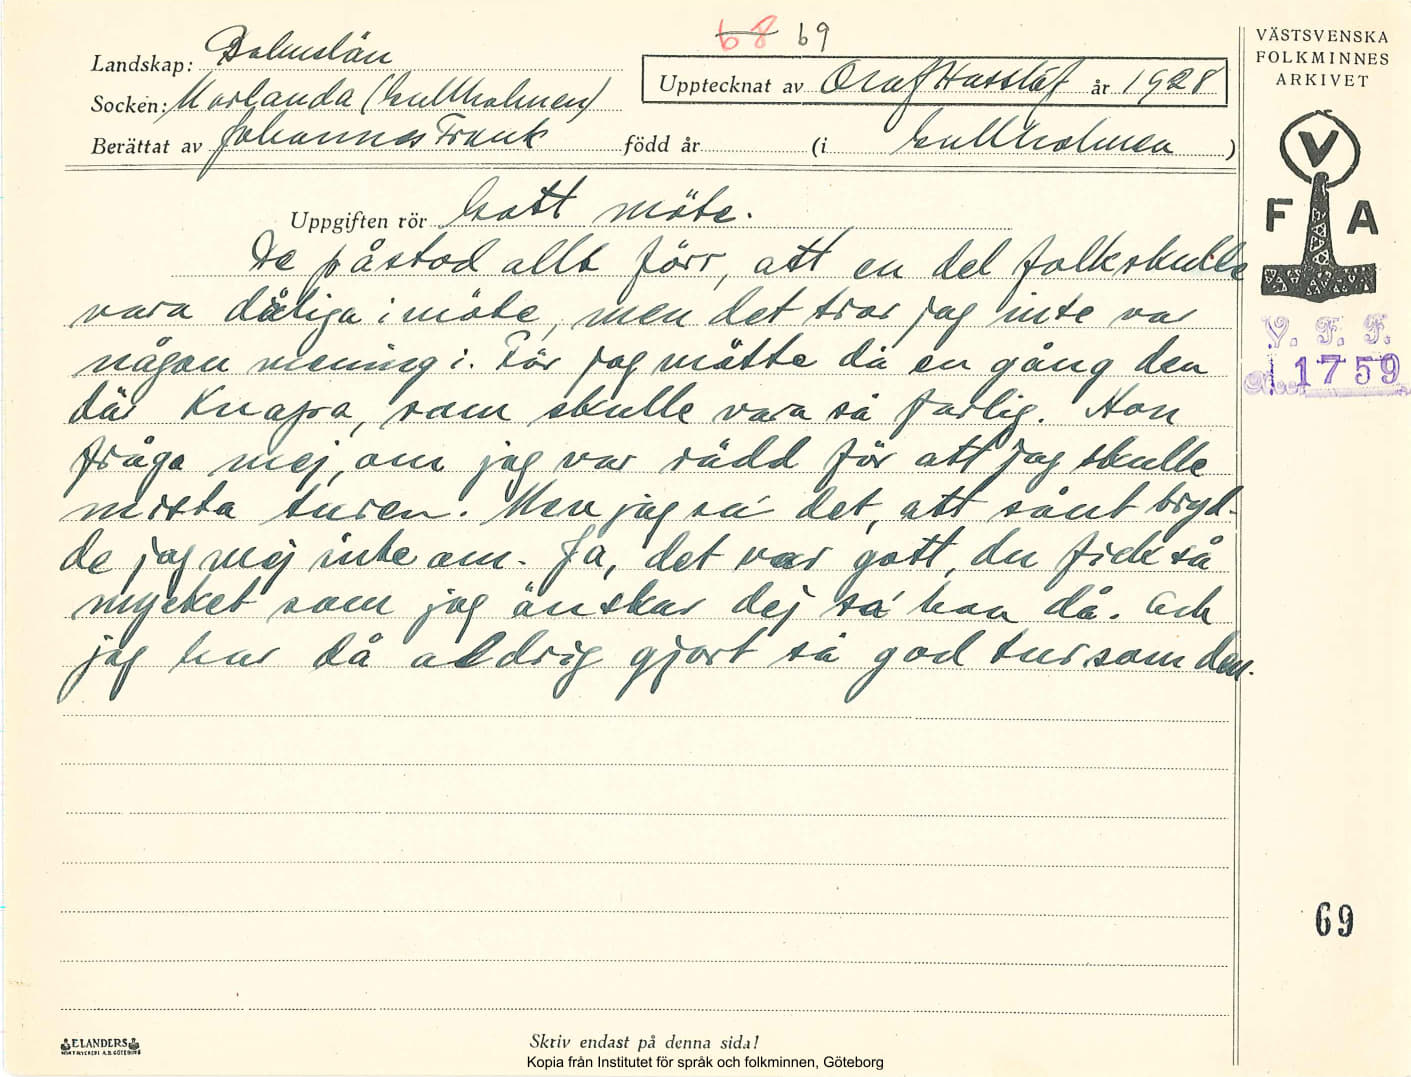 68 69
Landskap: Bohuslän
Socken: Morlanda (Gullholmen)
Upptecknat av Olaf Hasslöf år 1928
Berättat av Johannes Frank född år (i Gullholmen)
VÄSTSVENSKA
FOLKMINNES
ARKIVET
V
F A
V. F. F.
1759
Uppgiften rör Gott möte.
De påstod allt förr, att en del folk skulle
vara dåliga i möte, men det tror jag inte var
någon mening i. För jag mötte då en gång den
där Knapa, som skulle vara så farlig. Hon
fråga mej, om jag var rädd för att jag skulle
mista turen. Men jag sa det, att sånt bryd-
de jag mej inte om. Ja, det var gott, du fick så
mycket som jag önskar dej sa' hon då. Och
jag har då aldrig gjort så god tur som den.
69
ELANDERS
Skriv endast på denna sida!
Kopia från Institutet för språk och folkminnen, Göteborg